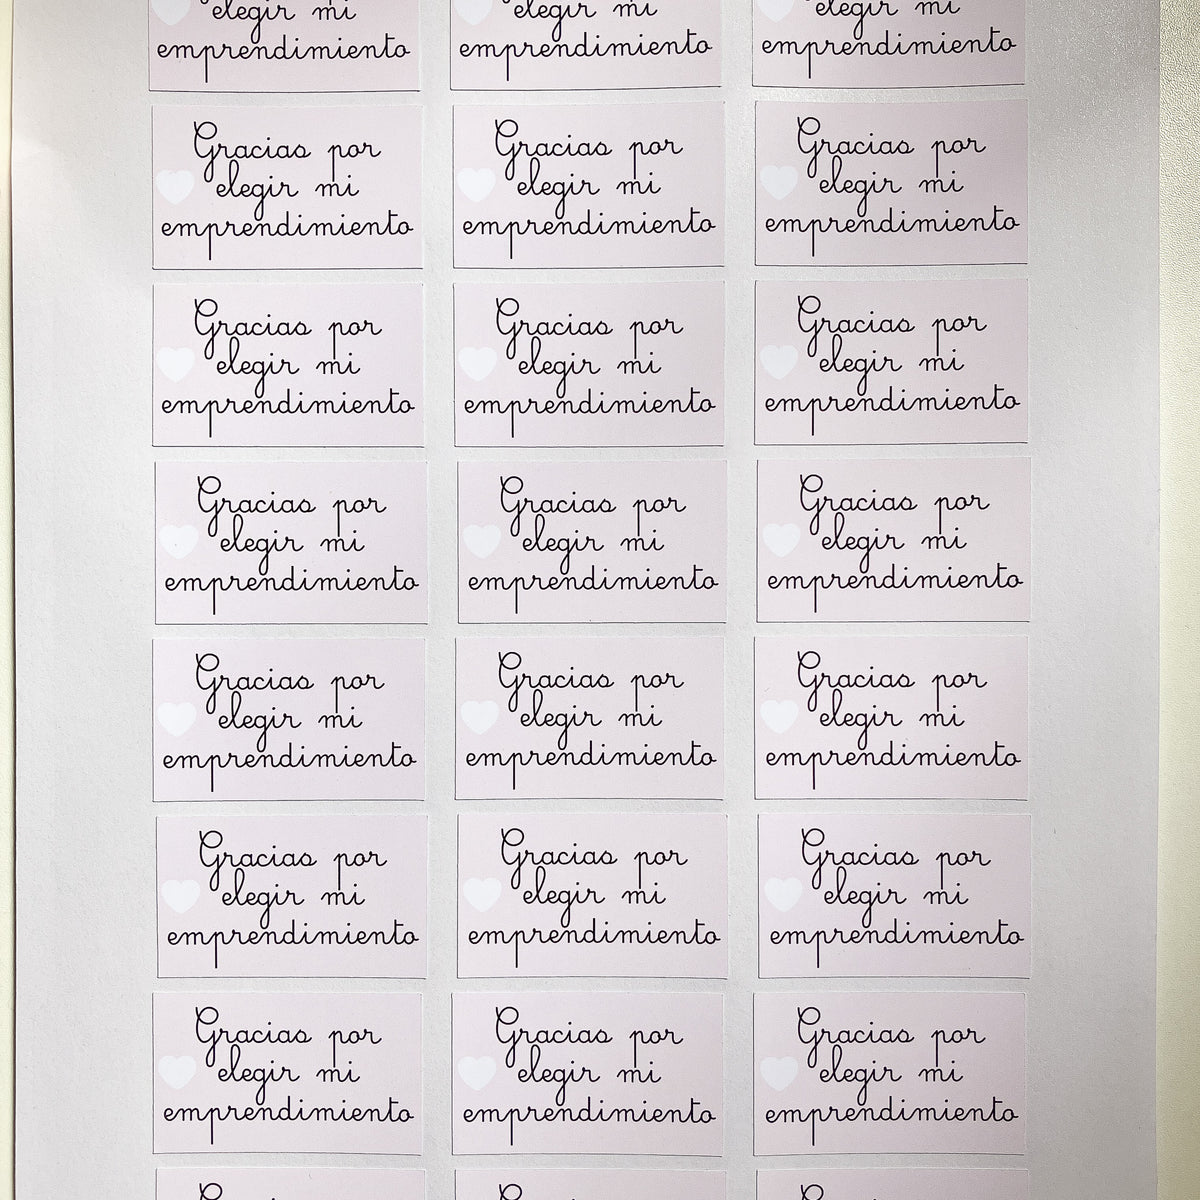 elegir mi
emprendimiento
elegir mi
emprendimiento
elegir mi
emprendimiento
Gracias por
elegir mi
emprendimiento
Gracias por
elegir mi
emprendimiento
Gracias por
elegir mi
emprendimiento
Gracias por
elegir mi
emprendimiento
Gracias por
elegir mi
emprendimiento
Gracias por
elegir mi
emprendimiento
Gracias por
elegir mi
emprendimiento
Gracias por
elegir mi
emprendimiento
Gracias por
elegir mi
emprendimiento
Gracias por
elegir mi
emprendimiento
Gracias por
elegir mi
emprendimiento
Gracias por
elegir mi
emprendimiento
Gracias por
elegir mi
emprendimiento
Gracias por
elegir mi
emprendimiento
Gracias por
elegir mi
emprendimiento
Gracias por
elegir mi
emprendimiento
Gracias por
elegir mi
emprendimiento
Gracias por
elegir mi
emprendimiento